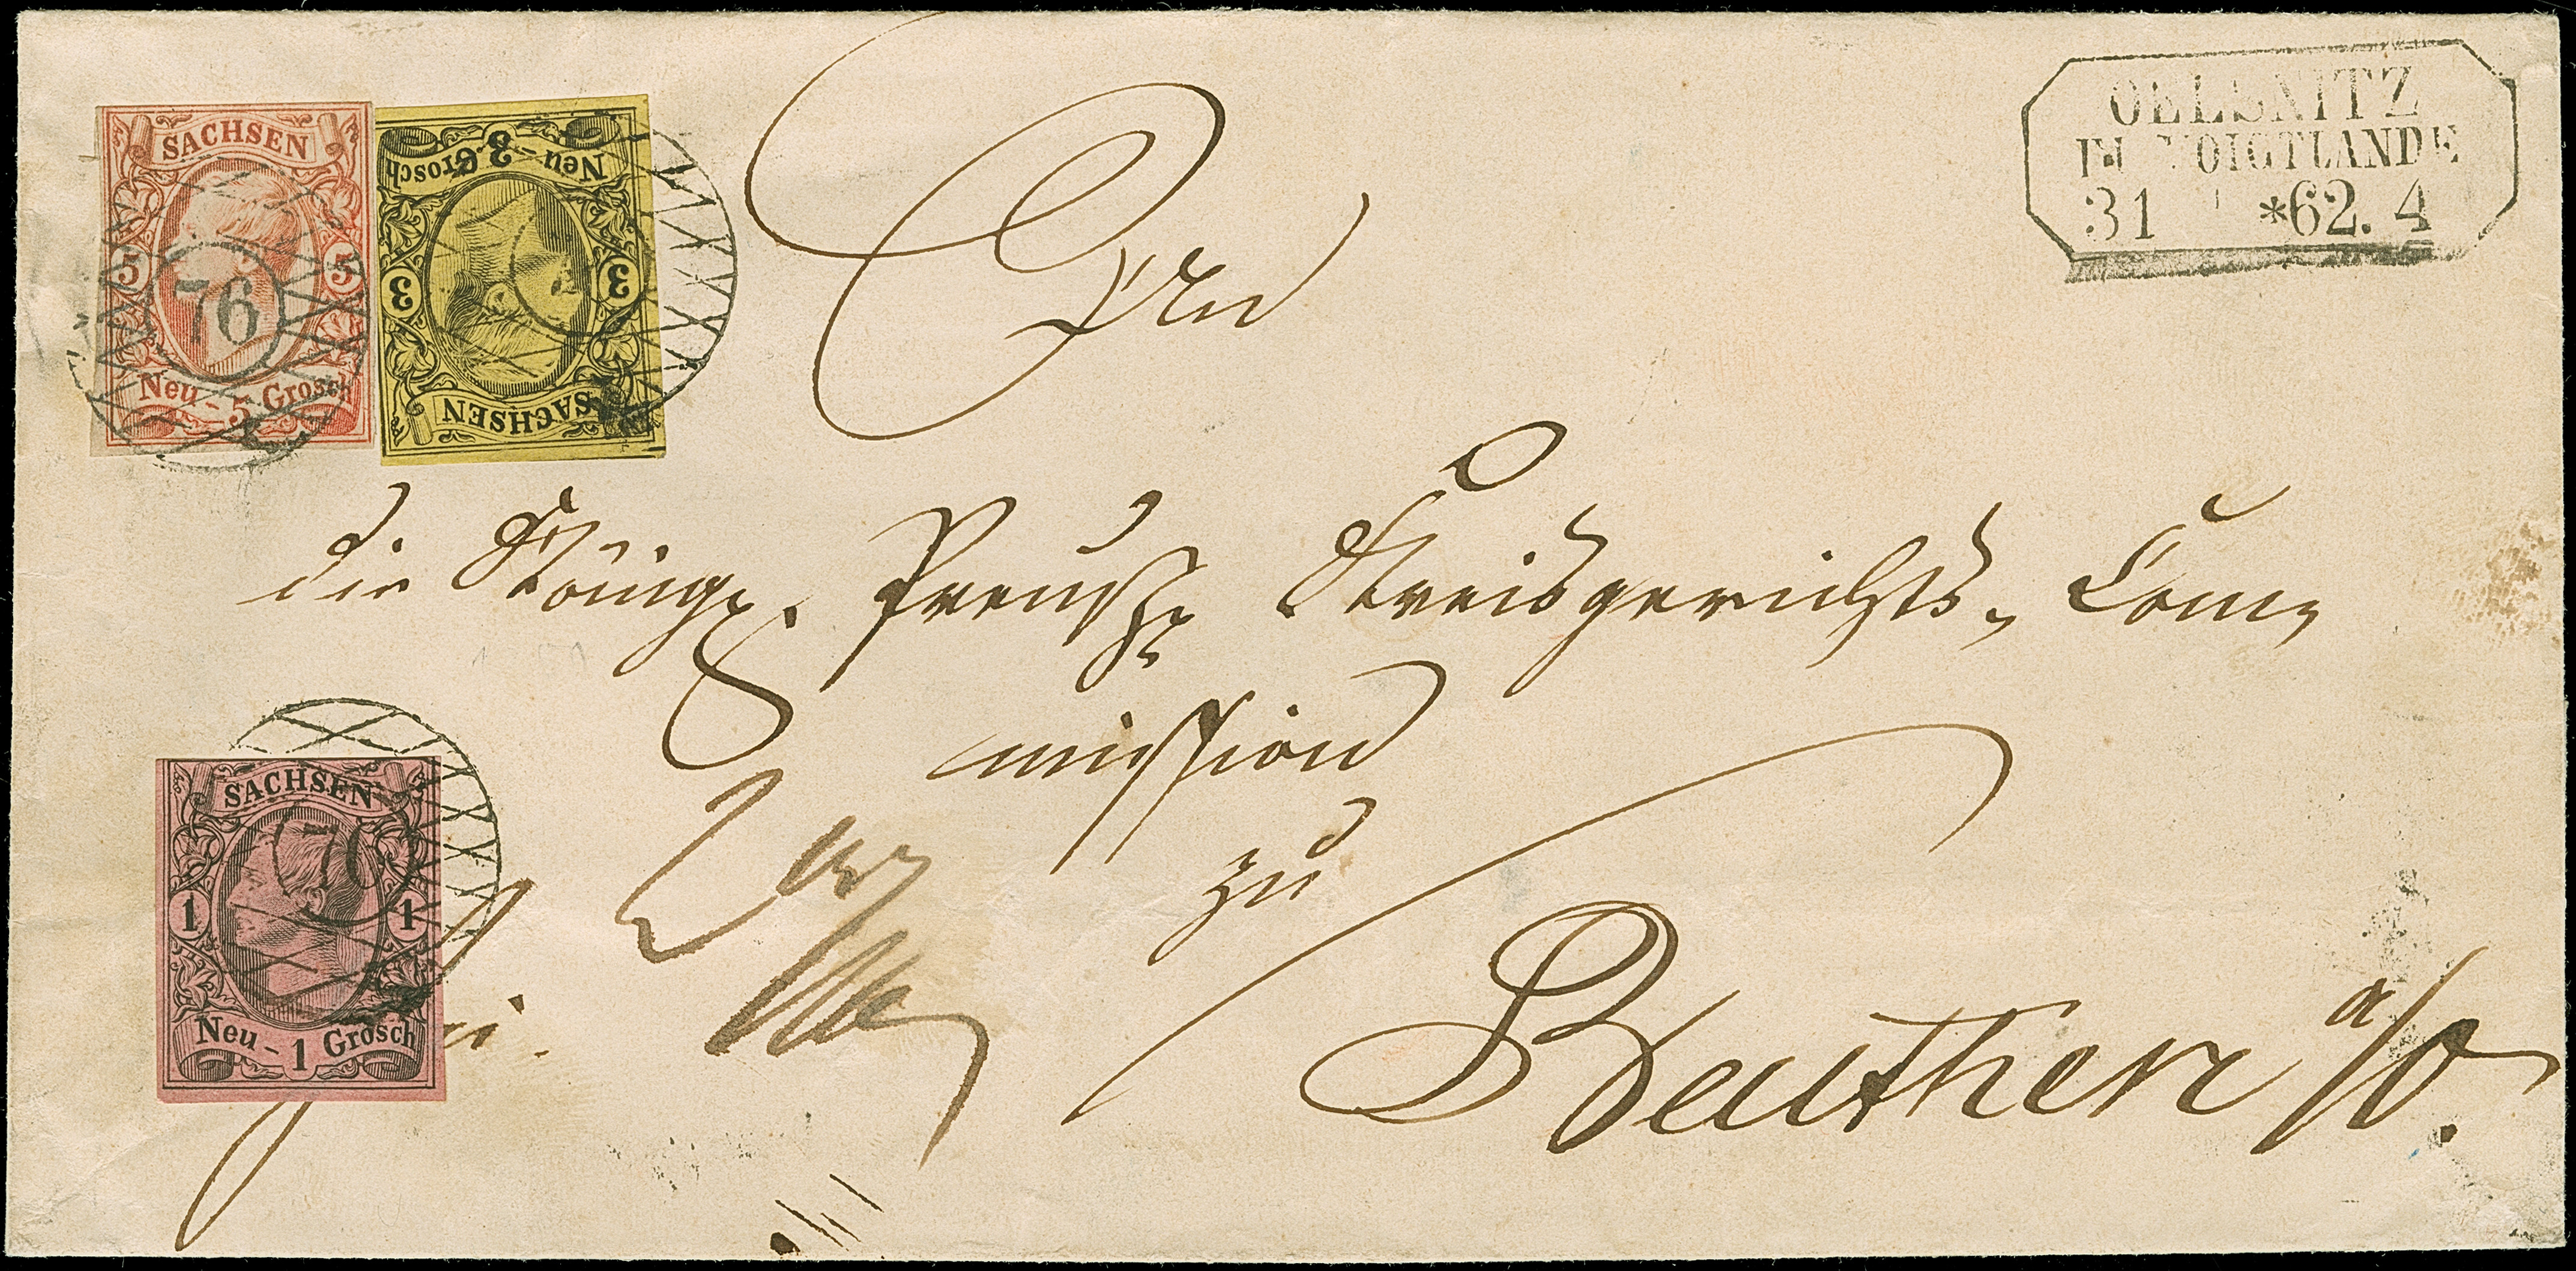 SACHSEN
5 5
76
Neu - 5 Grosch
SACHSEN
3 3
Neu - 3 Grosch
OELSNITZ
IM VOIGTLANDE
31 *62. 4
An
die Königl. Preuß. Kreisgerichts-Com-
mission
zu
Beuthen a/O.
SACHSEN
76
1 1
Neu - 1 Grosch